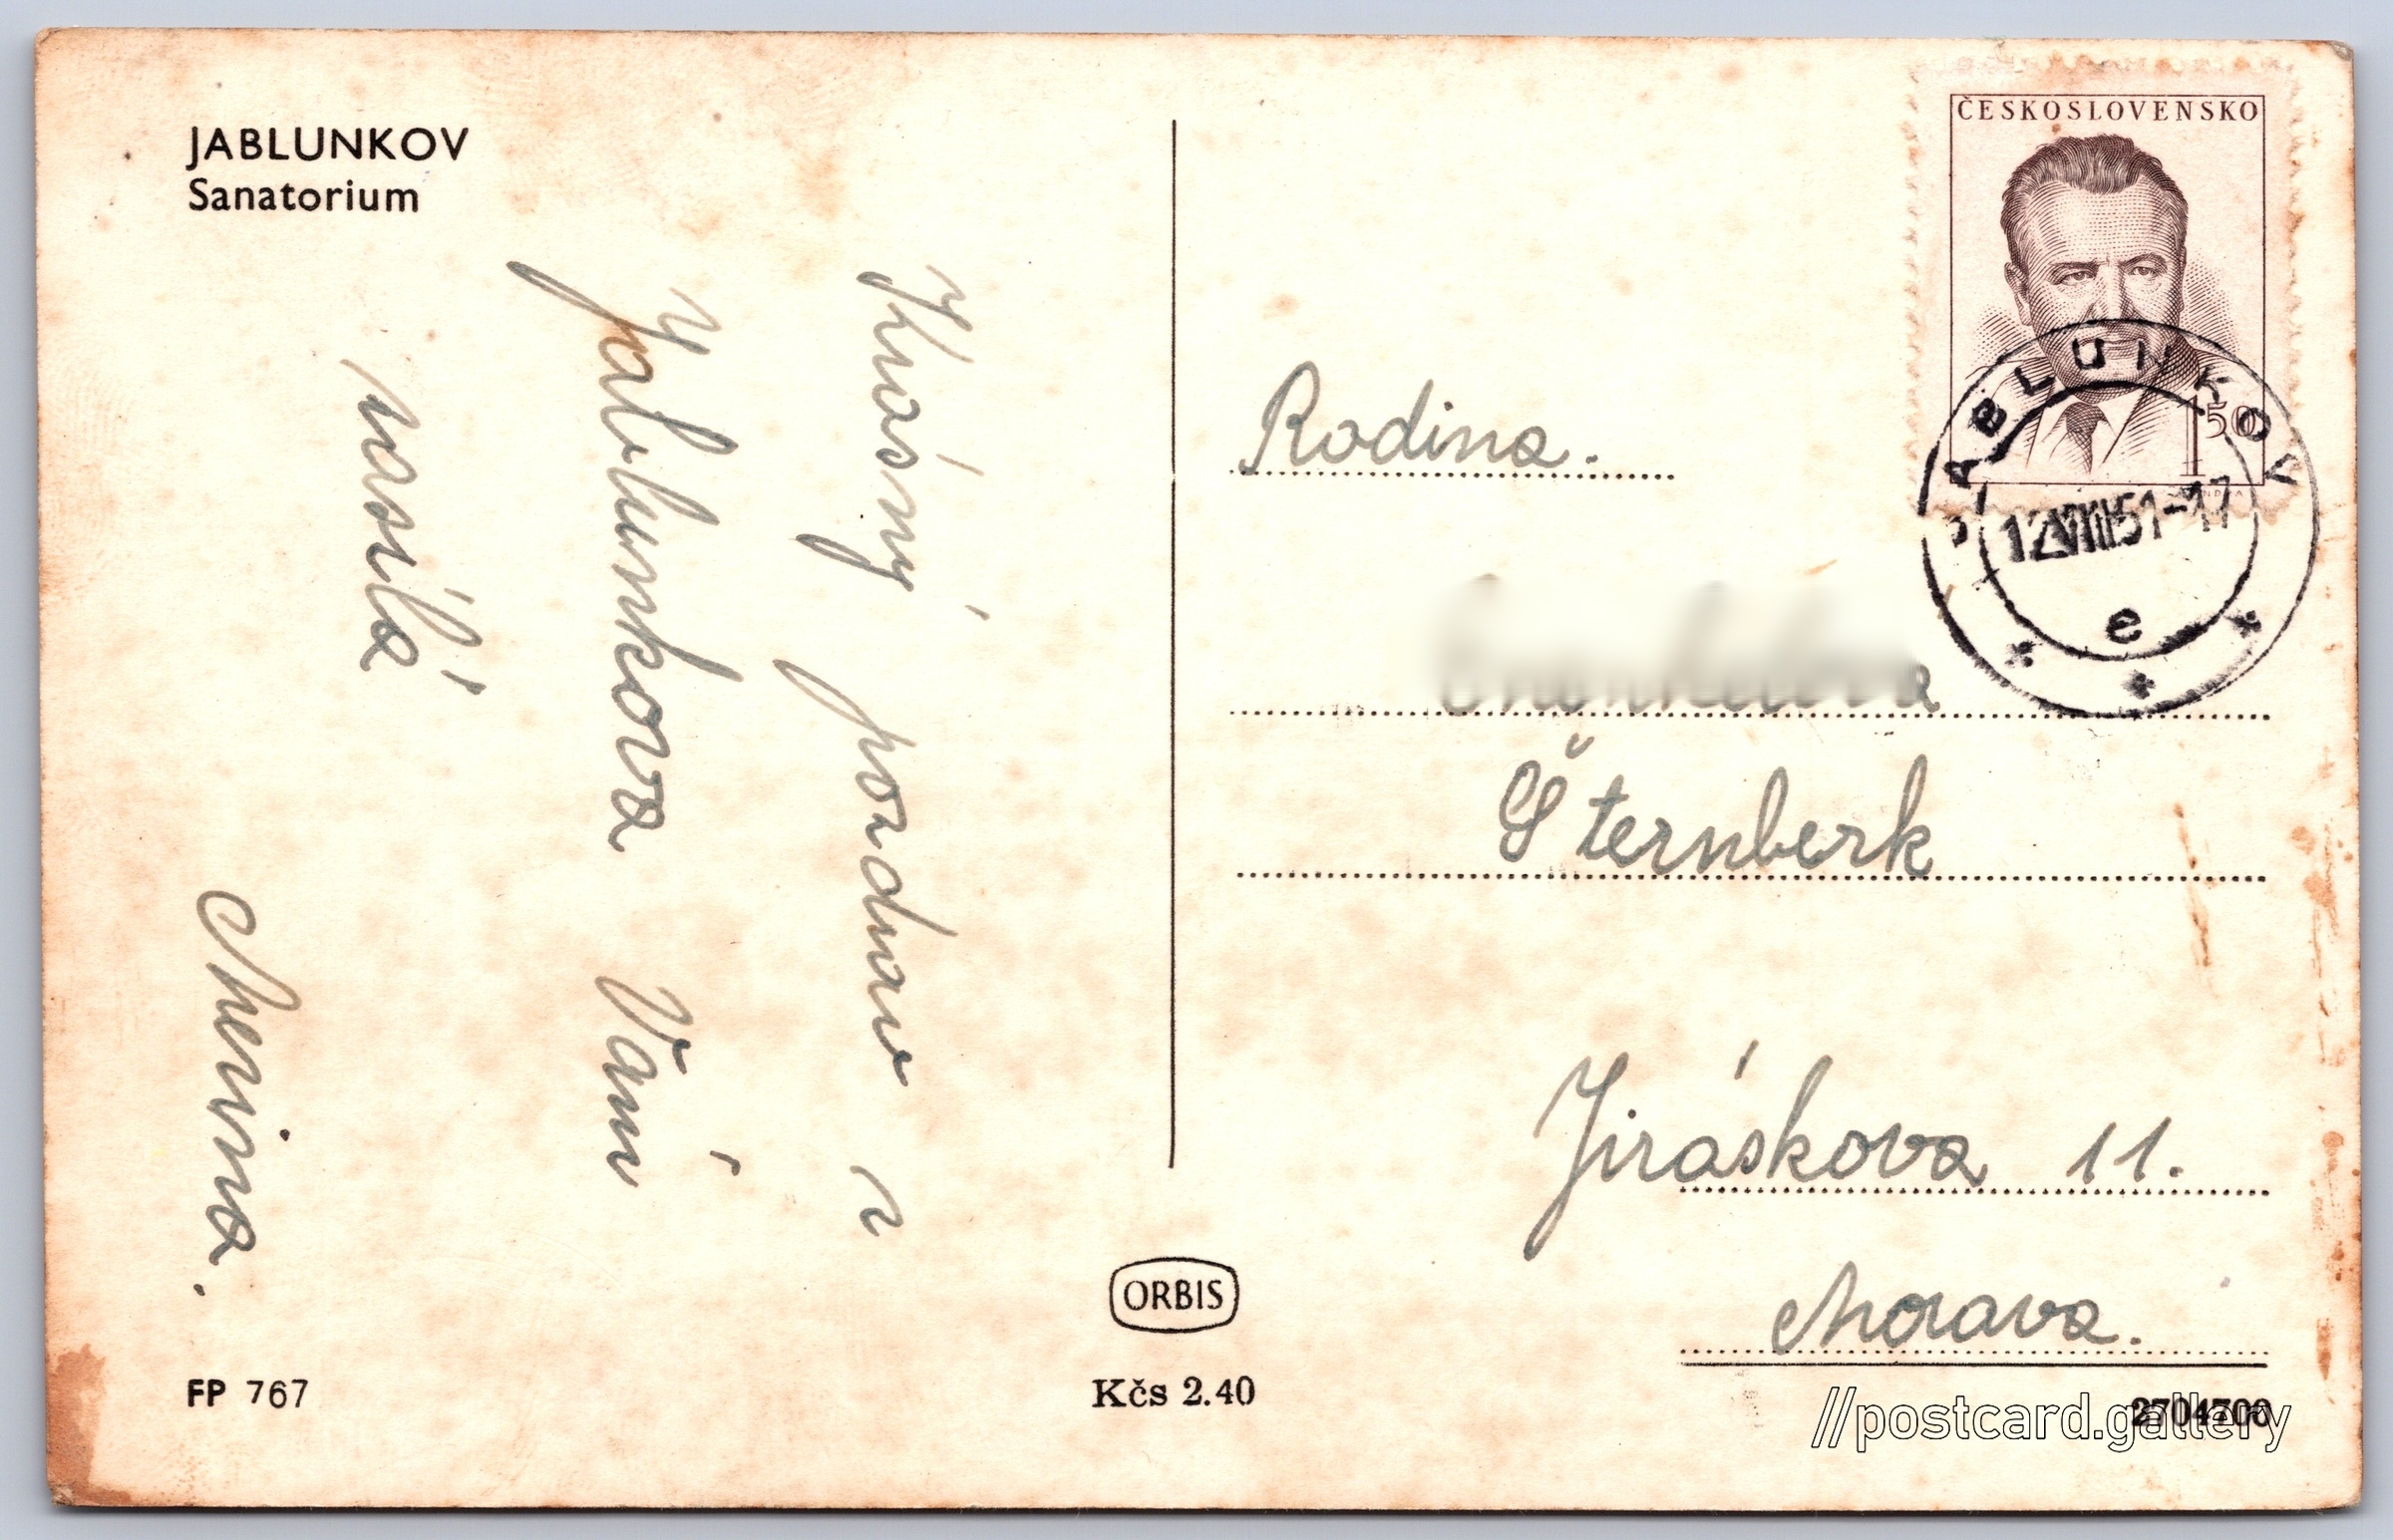 JABLUNKOV
Sanatorium
Krásný pozdrav z
Jablunkova Vám
zasílá
FP 767
ORBIS
Kčs 2.40
ČESKOSLOVENSKO
1.50
JABLUNKOV
12.VIII.51-17
e
Rodina.
Šternberk
Jiráskova 11.
Morava.
//postcard.gallery